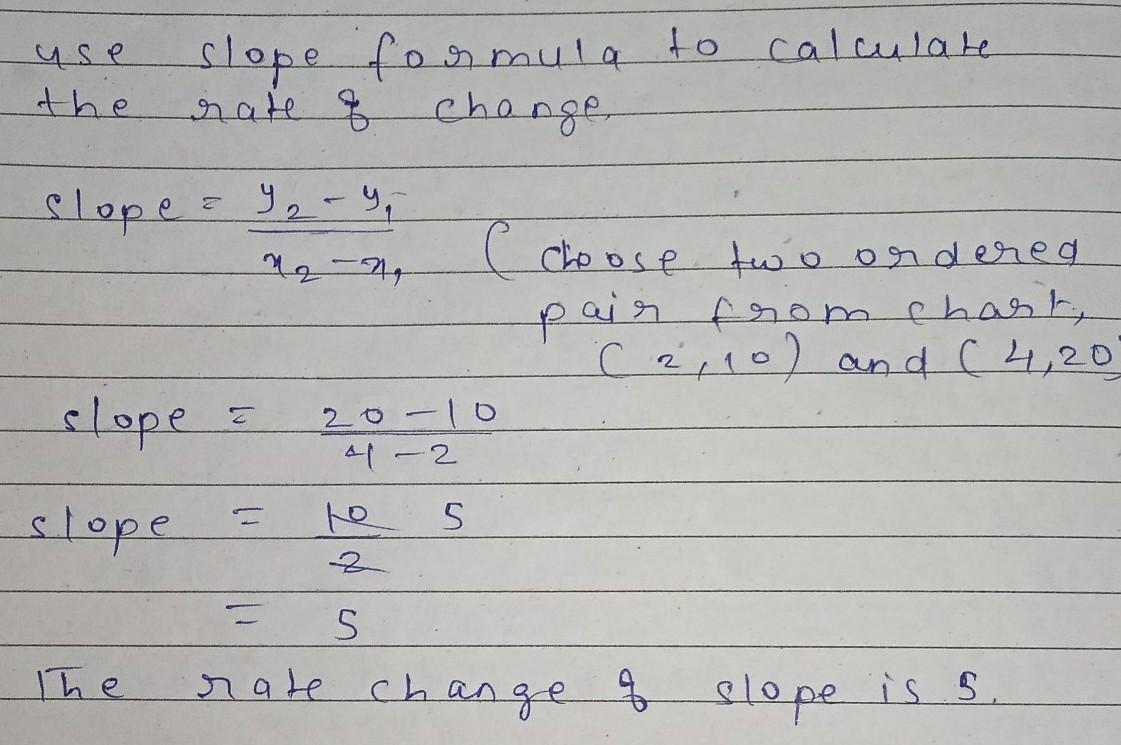 use slope formula to calculate
the rate of change.
slope = y₂ - y₁
x₂ - x₁
( Choose two ordered
pair from chart,
( 2, 10 ) and ( 4, 20 )
slope = 20 - 10
4 - 2
slope = 10 5
2
= 5
The rate change of slope is 5.